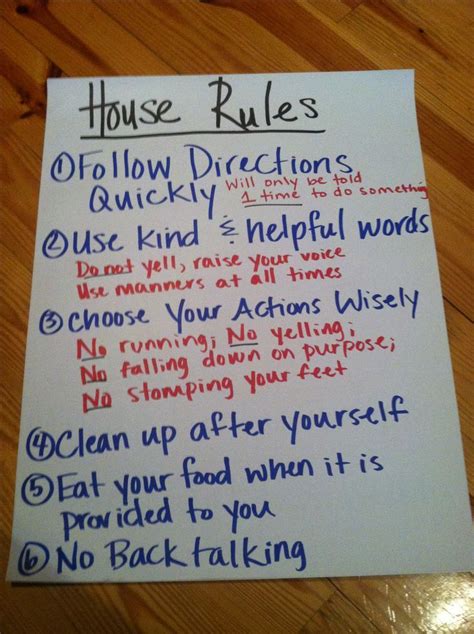 House Rules
① Follow Directions
Quickly Will only be told
1 time to do something
② Use kind & helpful words
Do not yell, raise your voice
Use manners at all times
③ Choose Your Actions Wisely
No running; No yelling;
No falling down on purpose;
No stomping your feet
④ Clean up after yourself
⑤ Eat your food when it is
provided to you
⑥ No Back talking